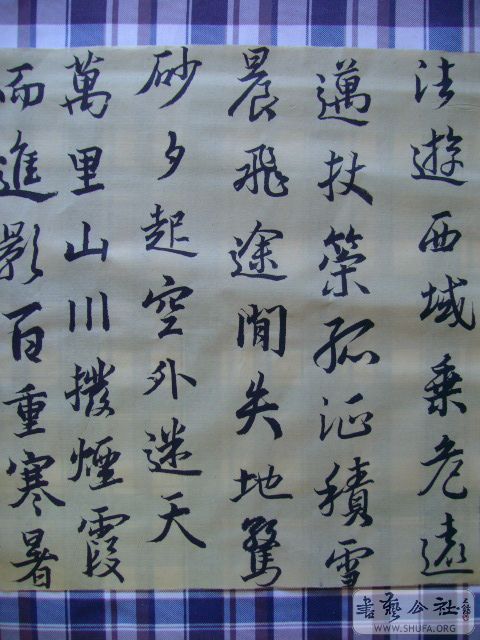 往遊西域乘危遠
邁杖策孤征積雪
晨飛途閒失地驚
砂夕起空外迷天
萬里山川撥煙霞
而進影百重寒暑
書藝公社
WWW.SHUFA.ORG